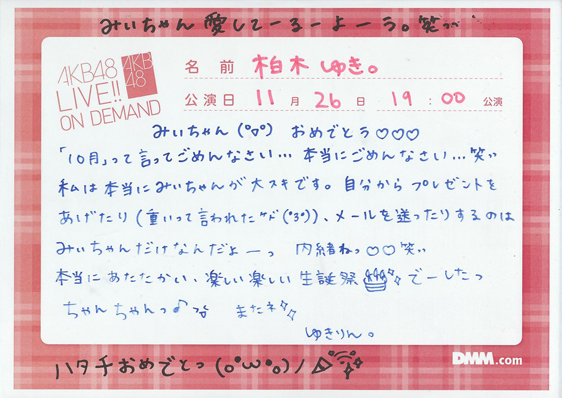 みぃちゃん愛してーるーよーう。笑
AKB48
LIVE!!
ON DEMAND
AKB
48
名前 柏木ゆき。
公演日 11月26日 19:00公演
みぃちゃん(°▽°) おめでとう♡♡♡
「10月」って言ってごめんなさい…本当にごめんなさい…笑
私は本当にみぃちゃんが大スキです。自分からプレゼントを
あげたり(重いって言われたケド(°3°))、メールを送ったりするのは
みぃちゃんだけなんだよーっ 内緒ねっ♡♡笑
本当にあたたかい、楽しい楽しい生誕祭でーしたっ
ちゃんちゃんっ♪ またネ
ゆきりん。
DMM.com
ハタチおめでとっ(o°ω°o)ノ